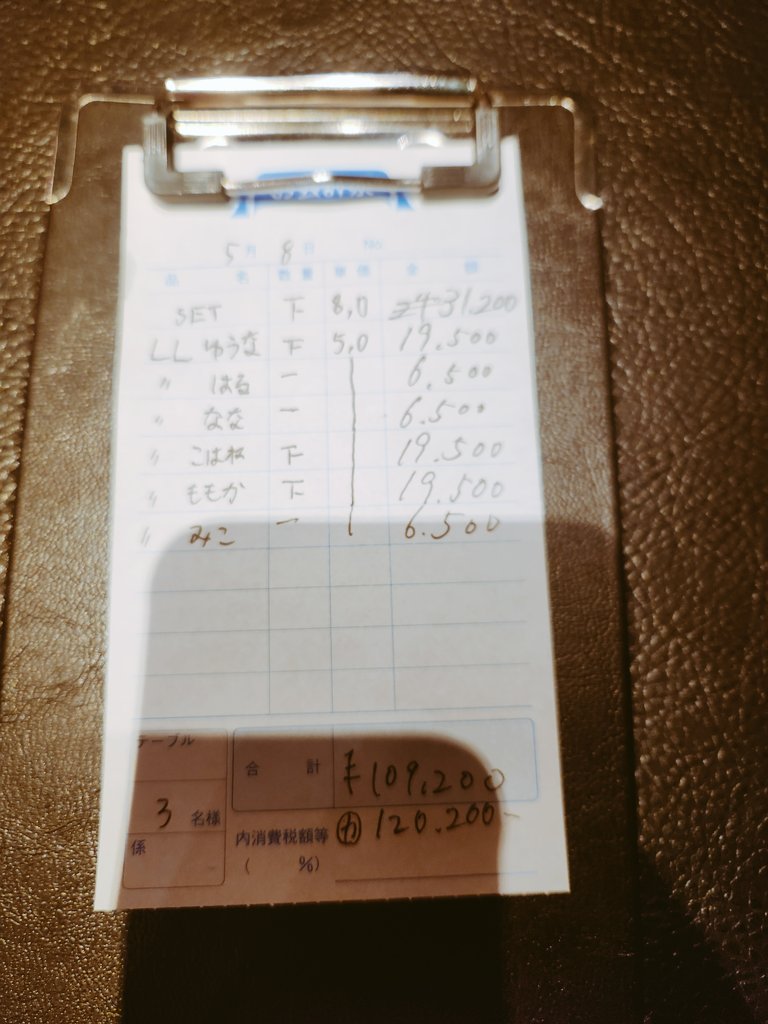 5月 8日 No
品 名 数量 単価 金 額
SET 下 8,0 31,200
LL ゆうな 下 5,0 19.500
〃 はる 一 6.500
〃 なな 一 6.500
〃 こはね 下 19.500
〃 ももか 下 19.500
〃 みこ 一 6.500
テーブル
合 計 ¥109,200
3 名様
係
内消費税額等 カ 120.200-
( %)